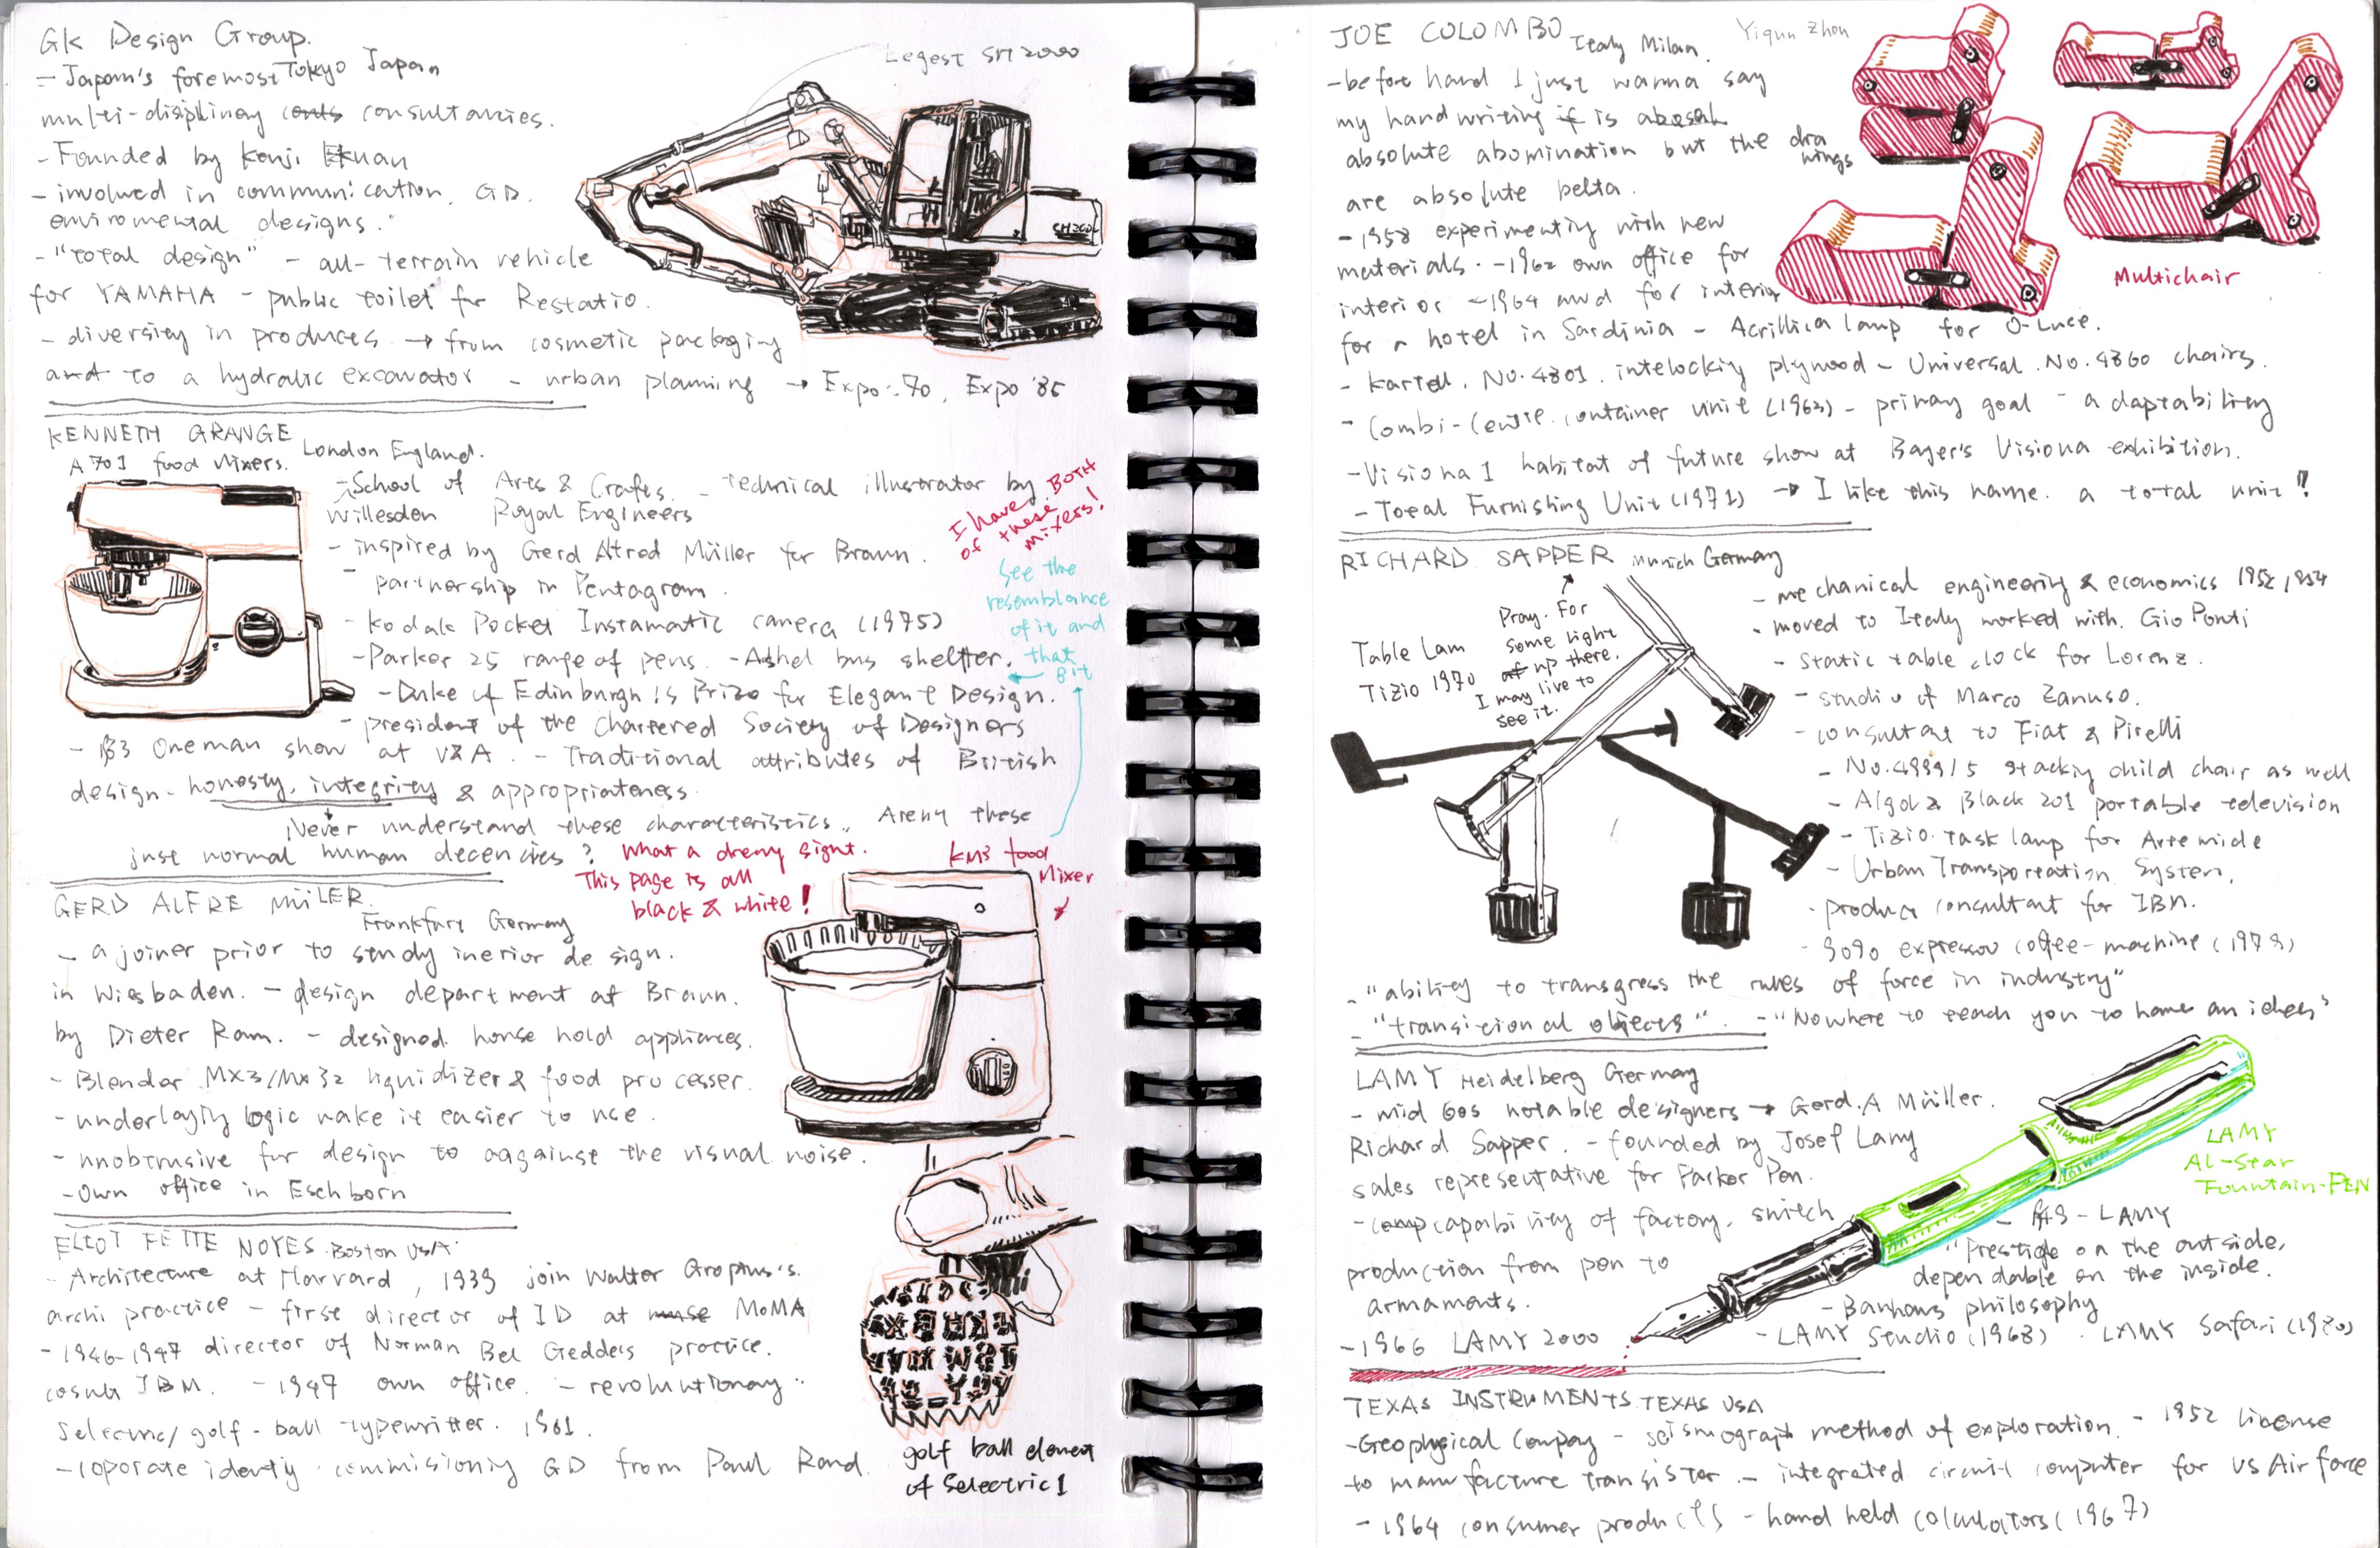 GK Design Group.
- Japan's foremost Tokyo Japan
multi-disiplinay consultancies.
- Founded by Kenji Ekuan
- involved in communication, GD.
enviromental designs.
- "total design" - all-terrain vehicle
for YAMAHA - public toilet for Restatio.
- diversity in produces → from cosmetic packaging
and to a hydralic excavator - urban planning → Expo '70, Expo '85
Legest SH2000
SH200
KENNETH GRANGE London England.
A701 food Mixers.
- School of Arts & Crafts. - technical illustrator by
Willesden Royal Engineers
- inspired by Gerd Alfred Müller for Braun.
- partnership in Pentagram.
- Kodak Pocket Instamatic camera (1975)
- Parker 25 range of pens. - Adshel bus shelter.
- Duke of Edinburgh's Prize for Elegant Design.
- president of the Chartered Society of Designers
- 183 Oneman show at V&A. - Traditional attributes of British
design - honesty, integrity & appropriateness.
Never understand these characteristics. Aren't these
just normal human decencies?
I have BOTH
of these
mixers!
See the
resemblance
of it and
that
git
What a dreny sight.
This page is all
black & white!
KM3 food
Mixer
GERD ALFRE MÜLER.
Frankfurt Germany
- a joiner prior to study inerior design.
in Wiesbaden. - design department at Braun.
by Dieter Ram. - designed household appliances.
- Blender MX3/MX32 liquidizer & food processer.
- underlaying logic make it easier to use.
- unobtrusive for design to aagainst the visual noise.
- Own office in Eschborn
ELIOT FETTE NOYES. Boston USA.
- Architecture at Harvard, 1939 join Walter Gropius's.
archi practice - first director of ID at MoMA
- 1946-1947 director of Norman Bel Geddes practice.
IBM. - 1947 own office. - revolutionay
Selectric/golf-ball typewritter. 1961.
- coporate identy commisioning GD from Paul Rand.
golf ball element
of Selectric 1
JOE COLOMBO Italy Milan.
Yiqun Zhou
- before hand I just wanna say
my handwriting if is abosal
absolute abomination but the drawings
are absolute belta.
- 1958 experimenting with new
materials. - 1962 own office for
interior - 1964 awd for interior
for a hotel in Sardinia - Acrillica lamp for O-Luce.
- Kartell. No. 4801. intelocking plywood - Universal. No. 4860 chairs.
- Combi-Centre container unit (1963) - primay goal - adaptability
- Visiona 1 habitat of future show at Bayer's Visiona exhibition.
- Total Furnishing Unit (1971) → I like this name. a total unit!
Multichair
RICHARD SAPPER Munich Germany
Table Lam
Tizio 1970
Pray. For
some light
of up there.
I may live to
see it.
- mechanical engineering & economics 1952, 1954
- moved to Italy worked with. Gio Ponti
- static table clock for Lorenz.
- studio of Marco Zanuso.
- consultant to Fiat & Pirelli
- No. 4999/5 stacking child chair as well
- Algol & Black 201 portable television
- Tizio. task lamp for Artemide
- Urban Transportation System.
- product consultant for IBN.
- 9090 expressov coffee-machine (1978)
- "ability to transgress the rules of force in industry"
- "transitional objects". - "Nowhere to teach you to have an idea"
LAMY Heidelberg Germany
- mid 60s notable designers → Gerd. A Müller.
Richard Sapper. - founded by Josef Lamy
sales representative for Parker Pen.
- comp capability of factory. switch
production from pen to
armaments.
- 1966 LAMY 2000
LAMY
Al-Star
Fountain-PEN
- LAMY
"Prestige on the outside,
dependable on the inside.
- Bauhaus philosophy
- LAMY Studio (1968) . LAMY Safari (1980)
TEXAS INSTRUMENTS. TEXAS USA
- Geophysical Company - seismograph method of exploration. - 1952 license
to manufacture transistor. - integrated circuit computer for US Air force
- 1964 consumer products - hand held calculators (1967)